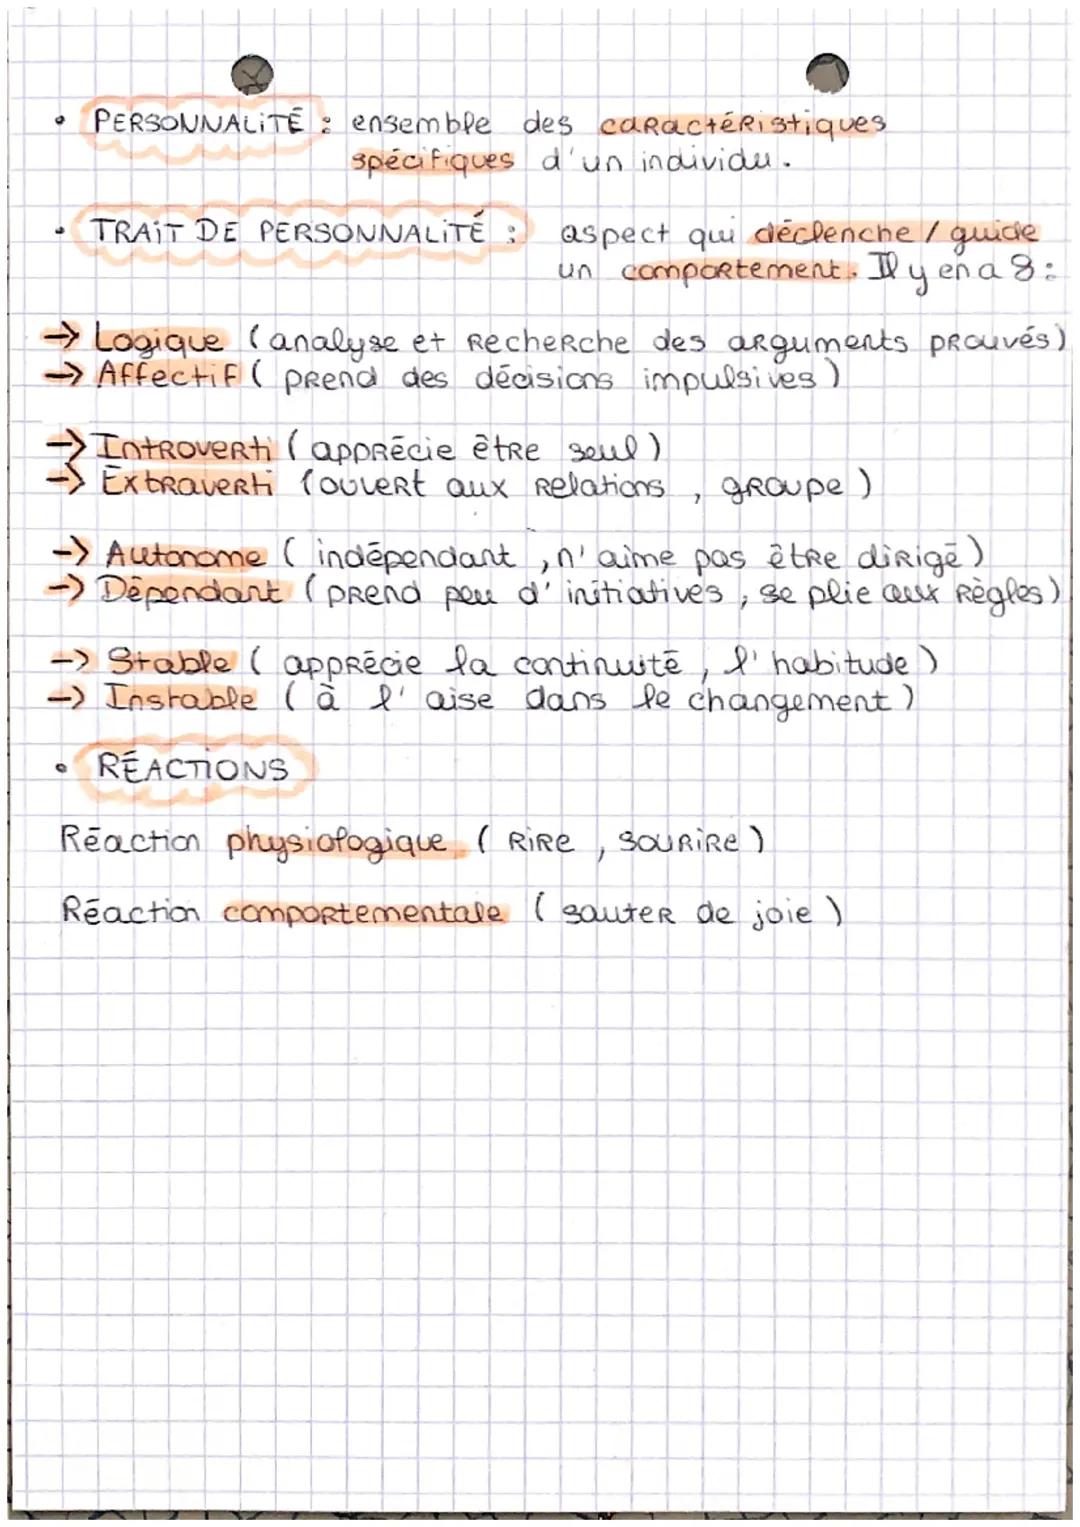 • PERSONNALITÉ : ensemble des caractéristiques
spécifiques d'un individu.
• TRAIT DE PERSONNALITÉ : aspect qui déclenche / guide
un comportement. Il y en a 8 :
→ Logique (analyse et recherche des arguments prouvés)
→ Affectif (prend des décisions impulsives)
→ Introverti (apprécie être seul)
→ Extraverti (ouvert aux relations, groupe)
→ Autonome (indépendant, n'aime pas être dirigé)
→ Dépendant (prend peu d'initiatives, se plie aux règles)
→ Stable (apprécie la continuité, l'habitude)
→ Instable (à l'aise dans le changement)
• RÉACTIONS
Réaction physiologique (rire, sourire)
Réaction comportementale (sauter de joie)